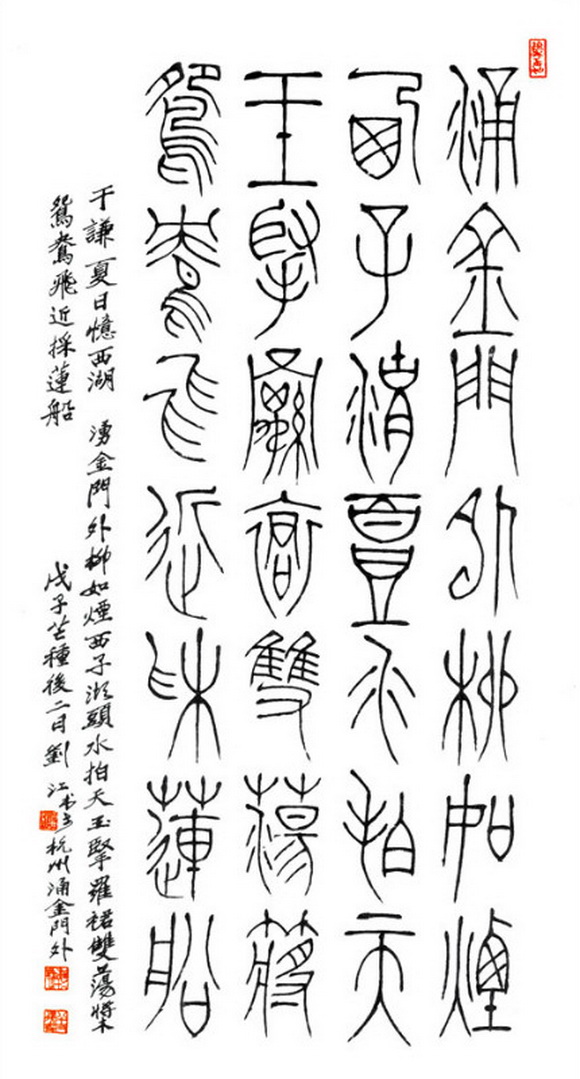 涌金門外柳如煙
西子湖頭水拍天
玉掔羅帬雙蕩蔣
鴛鴦飛近采蓮船
于謙夏日憶西湖 湧金門外柳如煙西子湖頭水拍天玉掔羅裙雙蕩槳
鴛鴦飛近採蓮船 戊子芒種後二日劉江书於杭州涌金門外